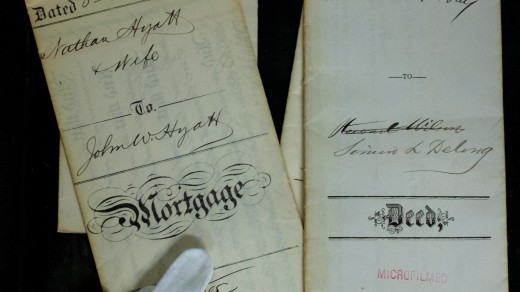 Dated
Nathan Hyatt
& Wife
To.
John W. Hyatt
Mortgage
TO
Simon L Delong
Deed,
MICROFILMED